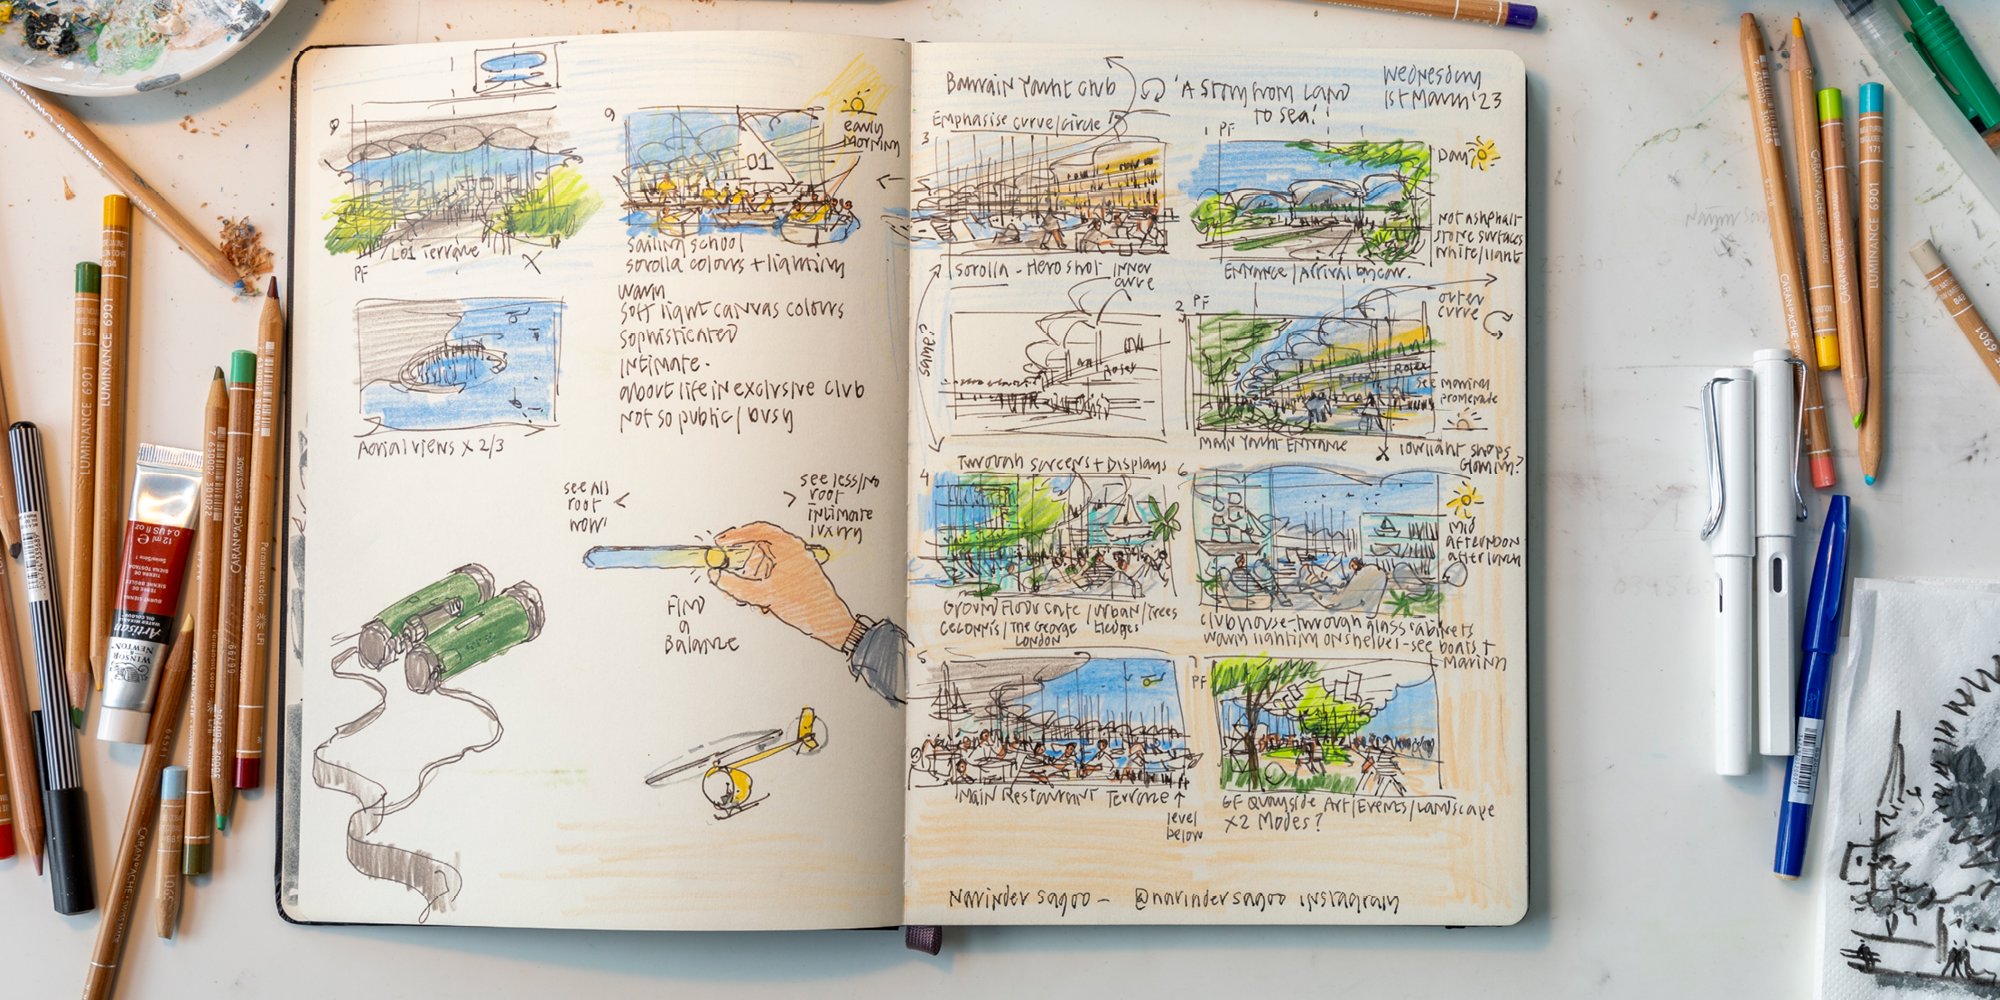 8
L01 Terrace
PF
X
Aerial views x 2/3
9
01
early
morning
sailing school
sorolla colours + lighting
warm
soft light canvas colours
sophisticated
intimate.
about life in exclusive club
not so public / busy
see all
roof
wow!
see less/no
roof
intimate
luxury
Find
a
Balance
Bahrain Yacht Club
'A story from Land
to sea!'
Wednesday
1st March '23
Emphasise curve/circle
3
Sorolla - Hero shot inner
curve
1 PF
Day
Not ashphalt
stone surfaces
white/light
Entrance / Arrival by car.
same?
Rolex
2
PF
outer
curve
Rolex
see marina
promenade
Main Yacht Entrance
X lowlight shops
Gloming?
Through screens + Displays
4
Ground Floor Cafe / urban / trees
Cecconis / The George hedges
London
6
mid
afternoon
after lunch
clubhouse - through glass cabinets
warm lighting on shelves - see boats +
marina
5
Main Restaurant Terrace
level
below
7
PF
GF Quayside Art/Events/Landscape
x2 Modes?
Narinder Sagoo - @narindersagoo instagram
LUMINANCE 6901
LUMINANCE 6901
CARAN D'ACHE • SWISS MADE
12 ml e
0.4 US fl oz
BURNT SIENNA
Artisan
WINSOR
& NEWTON
LUMINANCE 6901
CARAN D'ACHE